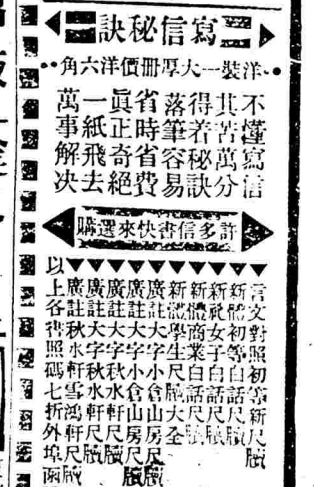 寫信秘訣
洋裝一大厚冊價洋六角
不懂寫信
其苦萬分
得若秘訣
落筆容易
省時省費
眞正奇絕
一紙飛去
萬事解决
許多信書快來選購
言文對照初等新尺牘
新體初等白話尺牘
新體女子白話尺牘
新體商業白話尺牘
新體學生尺牘大全
廣註大字小倉山房尺牘
廣註大字小倉山房尺牘
廣註大字秋水軒尺牘
廣註大字秋水軒尺牘
廣註秋水軒雪鴻軒尺牘
以上各書照碼七折外埠函